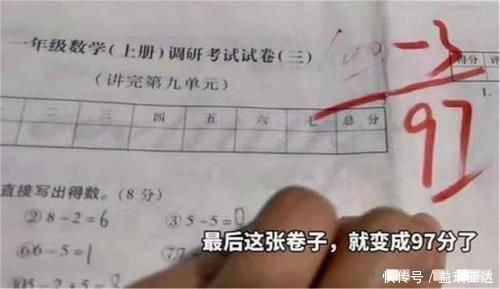 一年级数学(上册)调研考试试卷(三)
(讲完第九单元)
100-3
97
得分 评
一 二 三 四 五 六 七 总分
1.
直接写出得数。(8分)
②8-2=6 ③5-5=0
⑥6-5=1
最后这张卷子，就变成97分了
快传号 / 益琪亚达